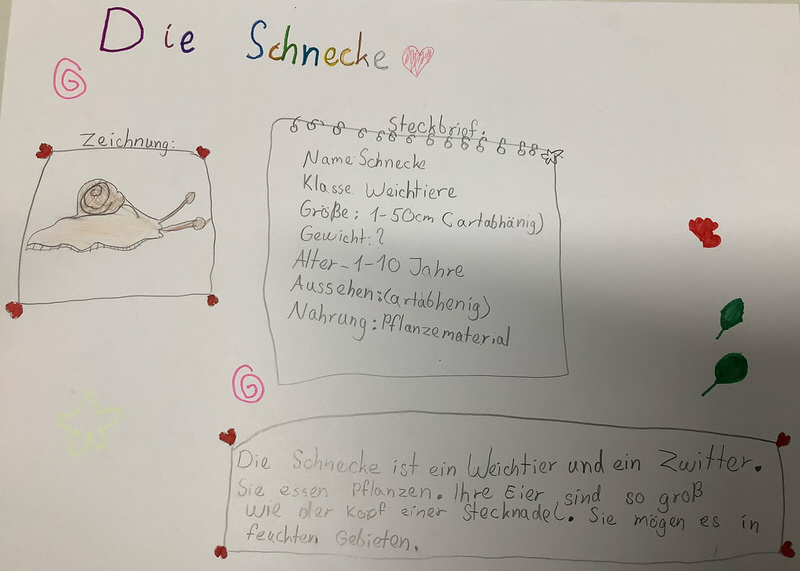 Die Schnecke
Zeichnung:
Steckbrief.
Name Schnecke
Klasse Weichtiere
Größe: 1-50cm (artabhänig)
Gewicht: ?
Alter-1-10 Jahre
Aussehen:(artabhenig)
Nahrung: Pflanzematerial
Die Schnecke ist ein Weichtier und ein Zwitter.
Sie essen Pflanzen. Ihre Eier sind so groß
wie der Kopf einer Stecknadel. Sie mögen es in
feuchten Gebieten.